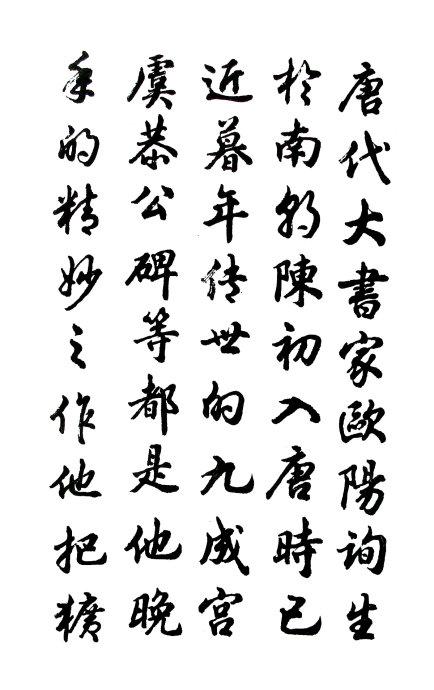 唐代大書家歐陽詢生
於南朝陳初入唐時已
近暮年傳世的九成宮
虞恭公碑等都是他晚
年的精妙之作他把獷